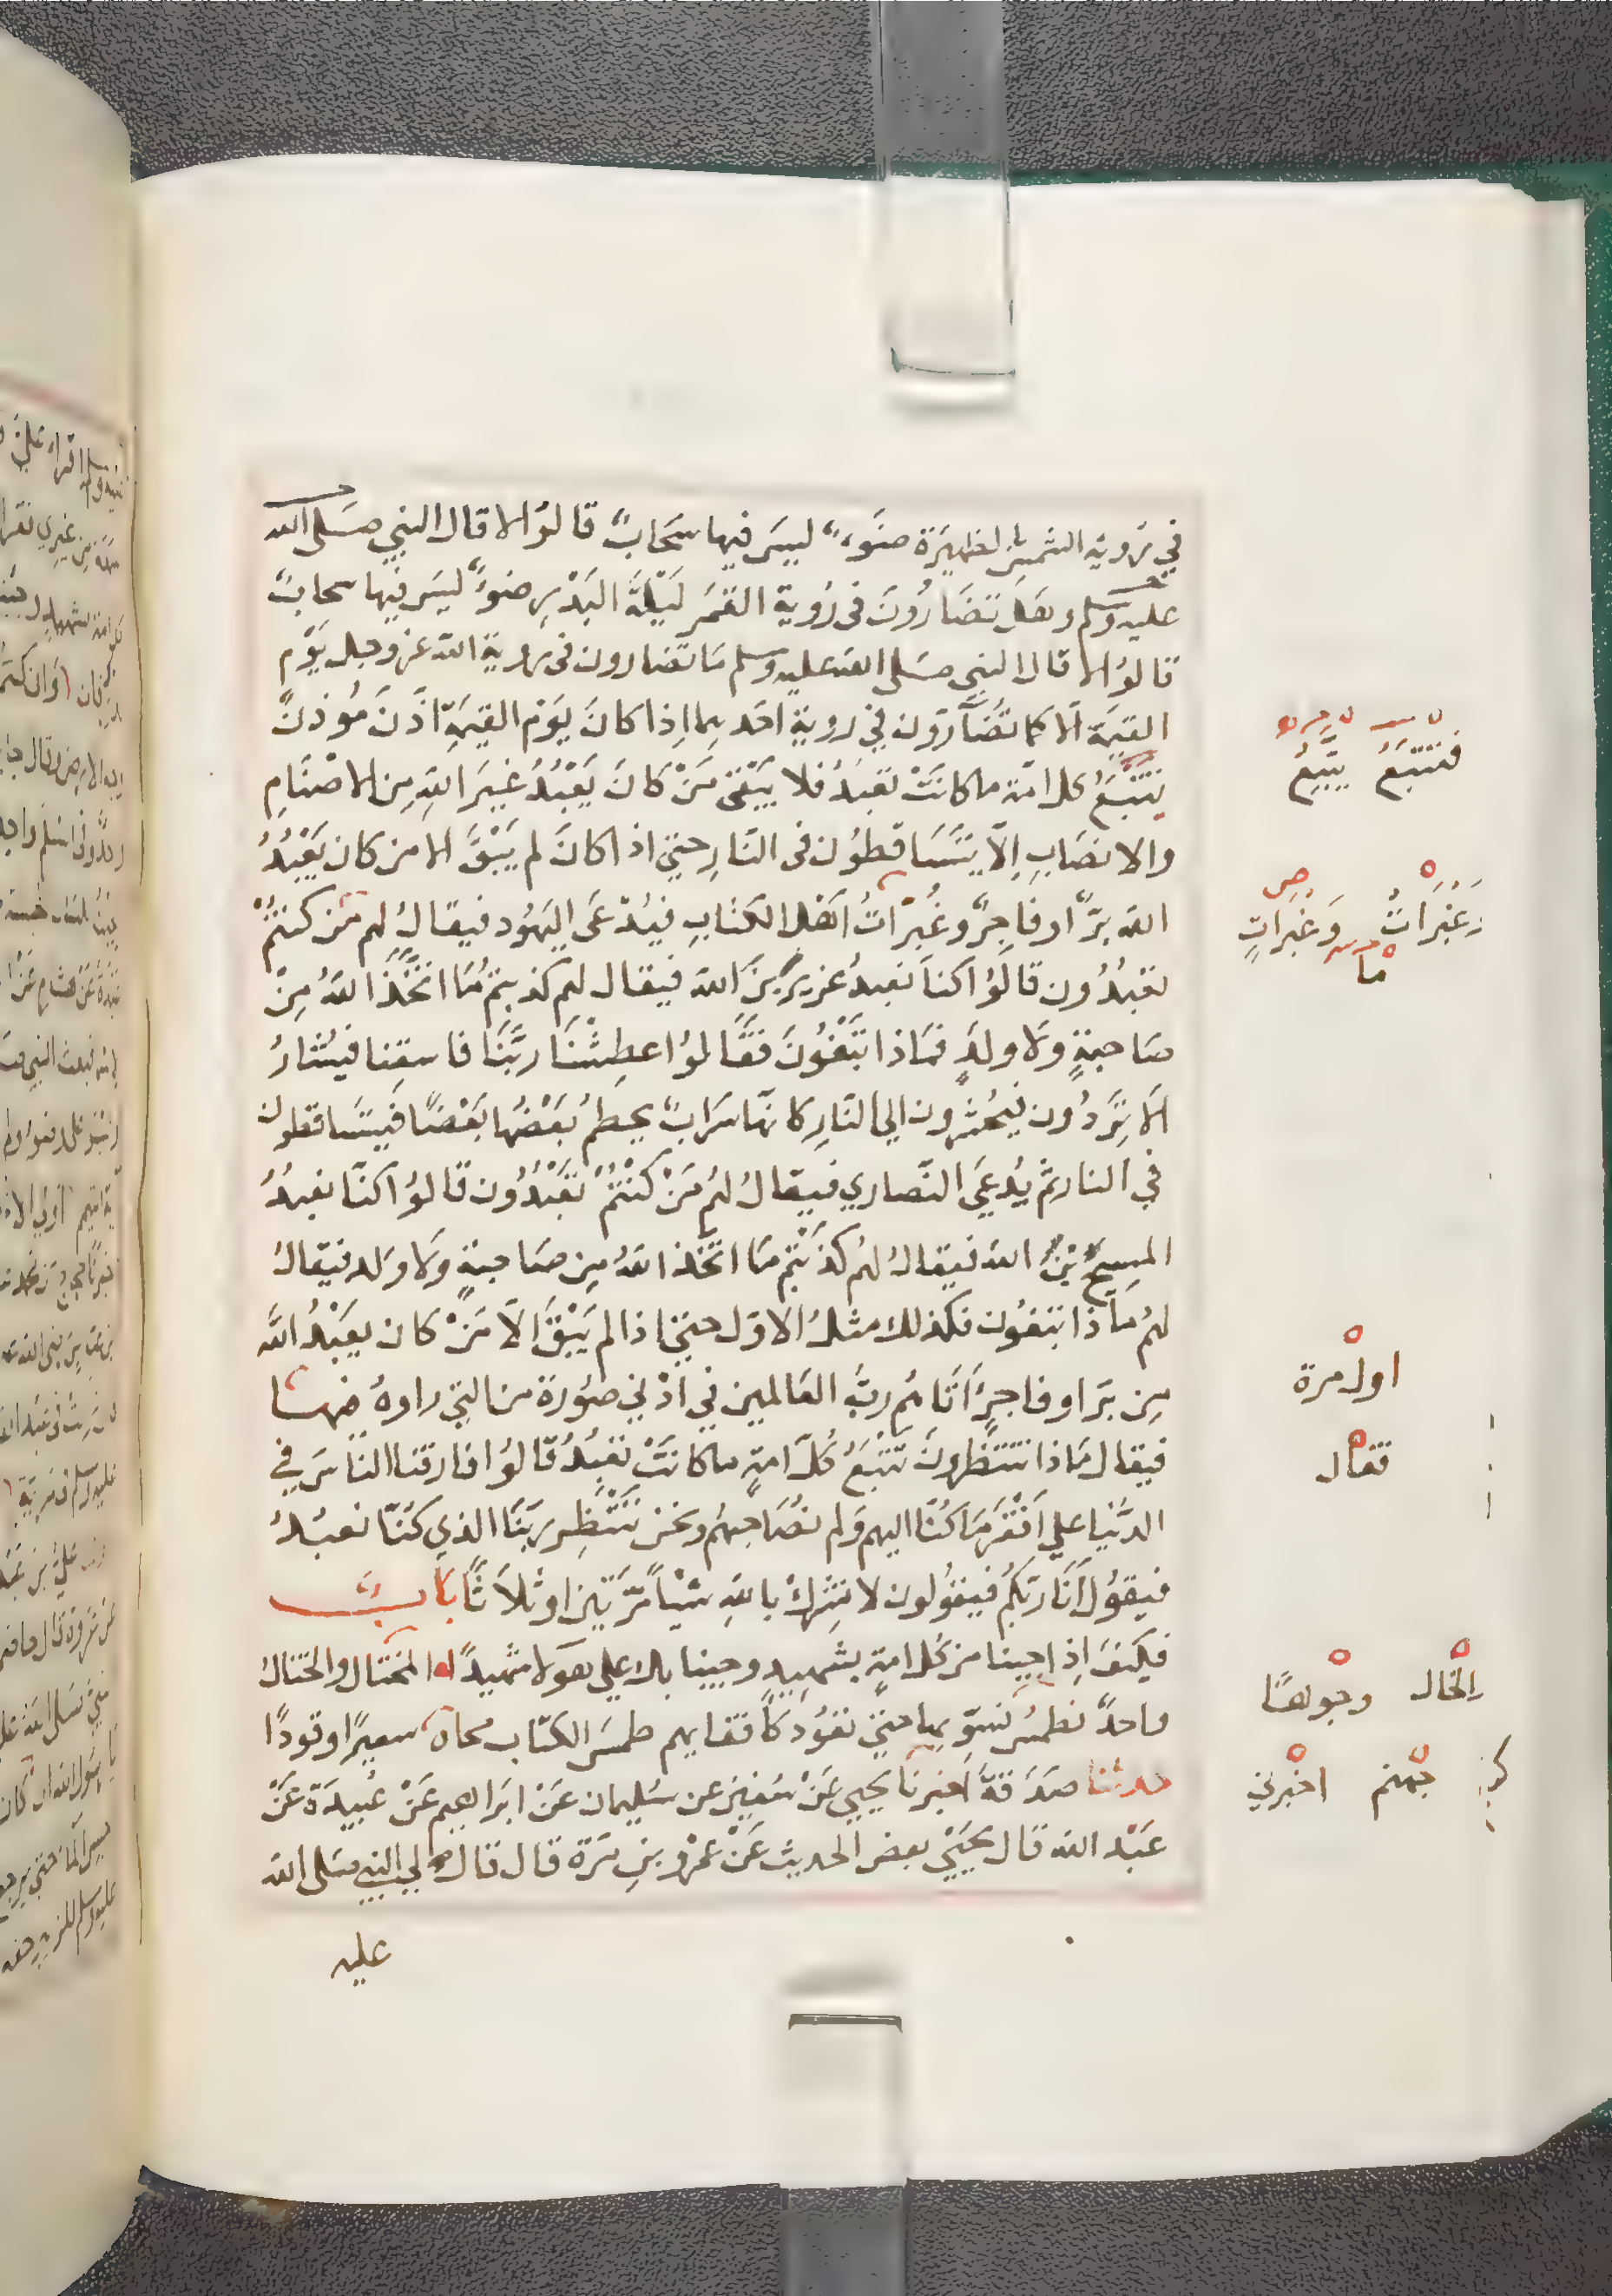 في رؤية الشمس بالظهيرة ضوء ليس فيها سحاب قالوا لا قال النبي صلى الله
عليه وسلم وهل تضارون في رؤية القمر ليلة البدر ضوء ليس فيها سحاب
قالوا لا قال النبي صلى الله عليه وسلم ما تضارون في رؤية الله عز وجل يوم
القيمة الا كما تضارون في روية احدهما اذا كان يوم القيمة اذن موذن
تتبع كل امة ما كانت تعبد فلا يبقى من كان يعبد غير الله من الاصنام
والانصاب الا يتساقطون في النار حتى اذا كان لم يبق الا من كان يعبد
الله بر او فاجر وغبرات اهل الكتاب فيدعى اليهود فيقال لهم من كنتم
تعبدون قالوا كنا نعبد عزير بن الله فيقال لهم كذبتم ما اتخذ الله من
صاحبة ولا ولد فماذا تبغون فقالوا عطشنا ربنا فاسقنا فيشار
الا تردون فيحشرون الى النار كانها سراب يحطم بعضها بعضا فيتساقطون
في النار ثم يدعى النصاري فيقال لهم من كنتم تعبدون قالوا كنا نعبد
المسيح بن الله فيقال لهم كذبتم ما اتخذ الله من صاحبة ولا ولد فيقال
لهم ماذا تبغون فكذلك مثل الاول حتى اذا لم يبق الا من كان يعبد الله
من بر او فاجر اتاهم رب العالمين في ادني صورة من التي راوه فيها
فيقال ماذا تنتظرون تتبع كل امة ما كانت تعبد قالوا فارقنا الناس في
الدنيا علي افقر ما كنا اليهم ولم نصاحبهم ونحن ننتظر ربنا الذي كنا نعبد
فيقول انا ربكم فيقولون لا نشرك بالله شيا مرتين او ثلاثا باب
فكيف اذا جينا من كل امة بشهيد وجينا بك علي هولا شهيدا المختال والختال
واحد نطمس نسويها حتى تعود كاقفايهم طمس الكتاب محاه سعيرا وقودا
حدثنا صدقة اخبرنا يحيي عن سفين عن سليمان عن ابراهيم عن عبيدة عن
عبد الله قال يحيي بعض الحديث عن عمرو بن مرة قال قال لي النبي صلى الله
عليه
فتتبع يتبع
وغبرات وغبرات
ما
اول مرة
فقال
والخال وجوها
جهنم اخبرني